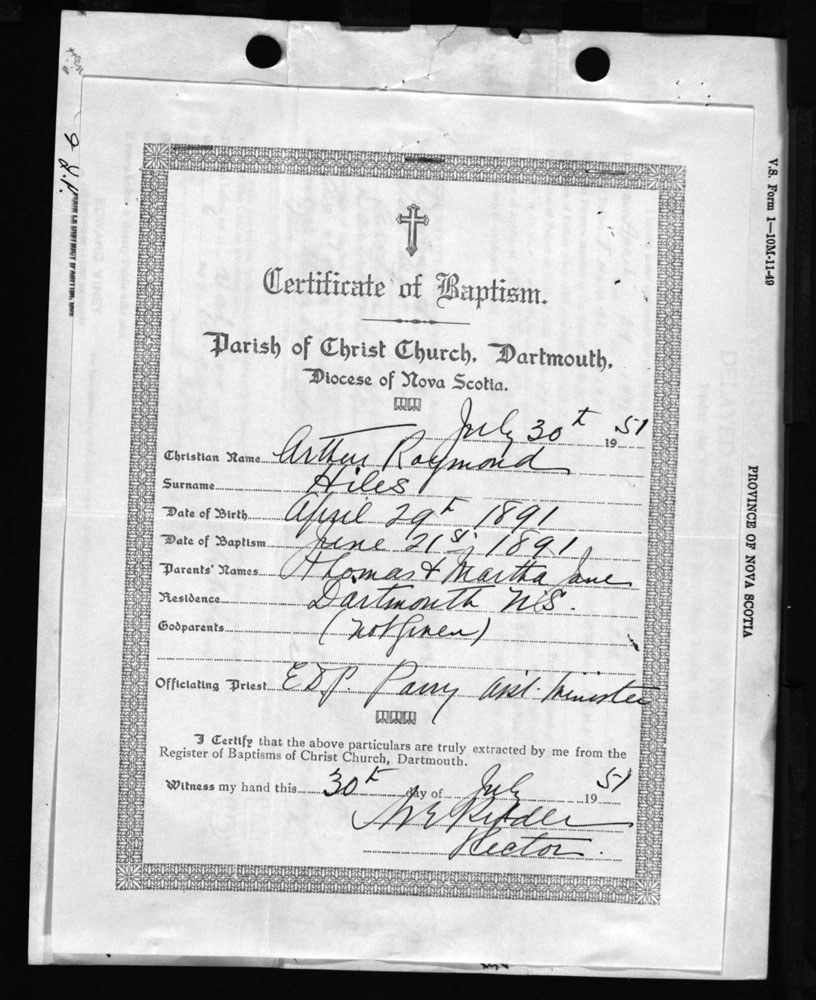 V.S. Form 1—10M-11-49
PROVINCE OF NOVA SCOTIA
Certificate of Baptism.
Parish of Christ Church, Dartmouth,
Diocese of Nova Scotia.
July 30th 1951
Christian Name Arthur Raymond
Surname Hiles
Date of Birth April 29th 1891
Date of Baptism June 21st 1891
Parents' Names Thomas & Martha Jane
Residence Dartmouth N.S.
Godparents (not given)
Officiating Priest E D P. Parry asst. minister
I Certify that the above particulars are truly extracted by me from the
Register of Baptisms of Christ Church, Dartmouth.
Witness my hand this 30th day of July 1951
Rector.